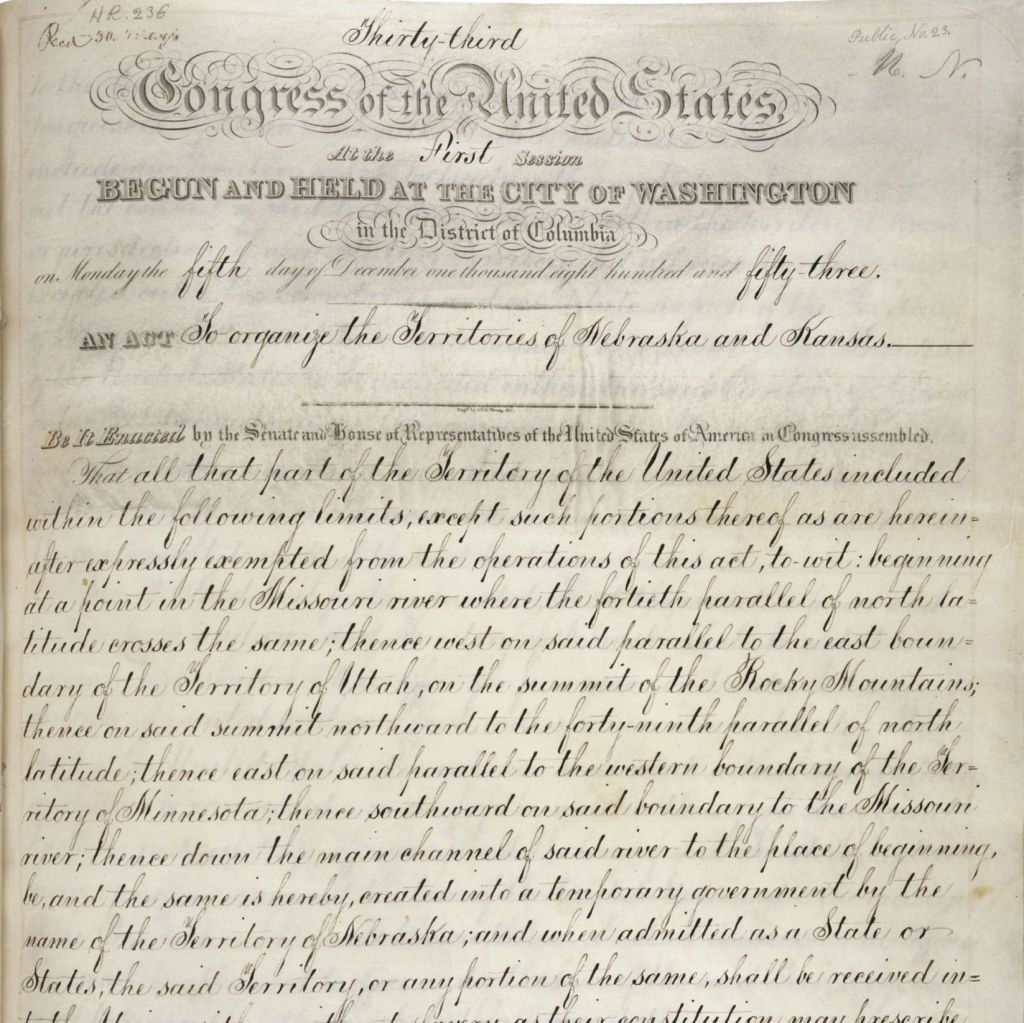 H.R. 236
Recd 30. May
Public, No. 23.
N. N.
Thirty-third
Congress of the United States,
At the First Session
BEGUN AND HELD AT THE CITY OF WASHINGTON
in the District of Columbia
on Monday the fifth day of December one thousand eight hundred and fifty-three.
AN ACT To organize the Territories of Nebraska and Kansas.
Be It Enacted by the Senate and House of Representatives of the United States of America in Congress assembled,
That all that part of the Territory of the United States included
within the following limits, except such portions thereof as are herein=
after expressly exempted from the operations of this act, to-wit: beginning
at a point in the Missouri river where the fortieth parallel of north la=
titude crosses the same; thence west on said parallel to the east boun=
dary of the Territory of Utah, on the summit of the Rocky Mountains;
thence on said summit northward to the forty-ninth parallel of north
latitude; thence east on said parallel to the western boundary of the Ter=
ritory of Minnesota; thence southward on said boundary to the Missouri
river; thence down the main channel of said river to the place of beginning,
be, and the same is hereby, created into a temporary government by the
name of the Territory of Nebraska; and when admitted as a State or
States, the said Territory, or any portion of the same, shall be received in=
to the Union with or without slavery, as their constitution may prescribe